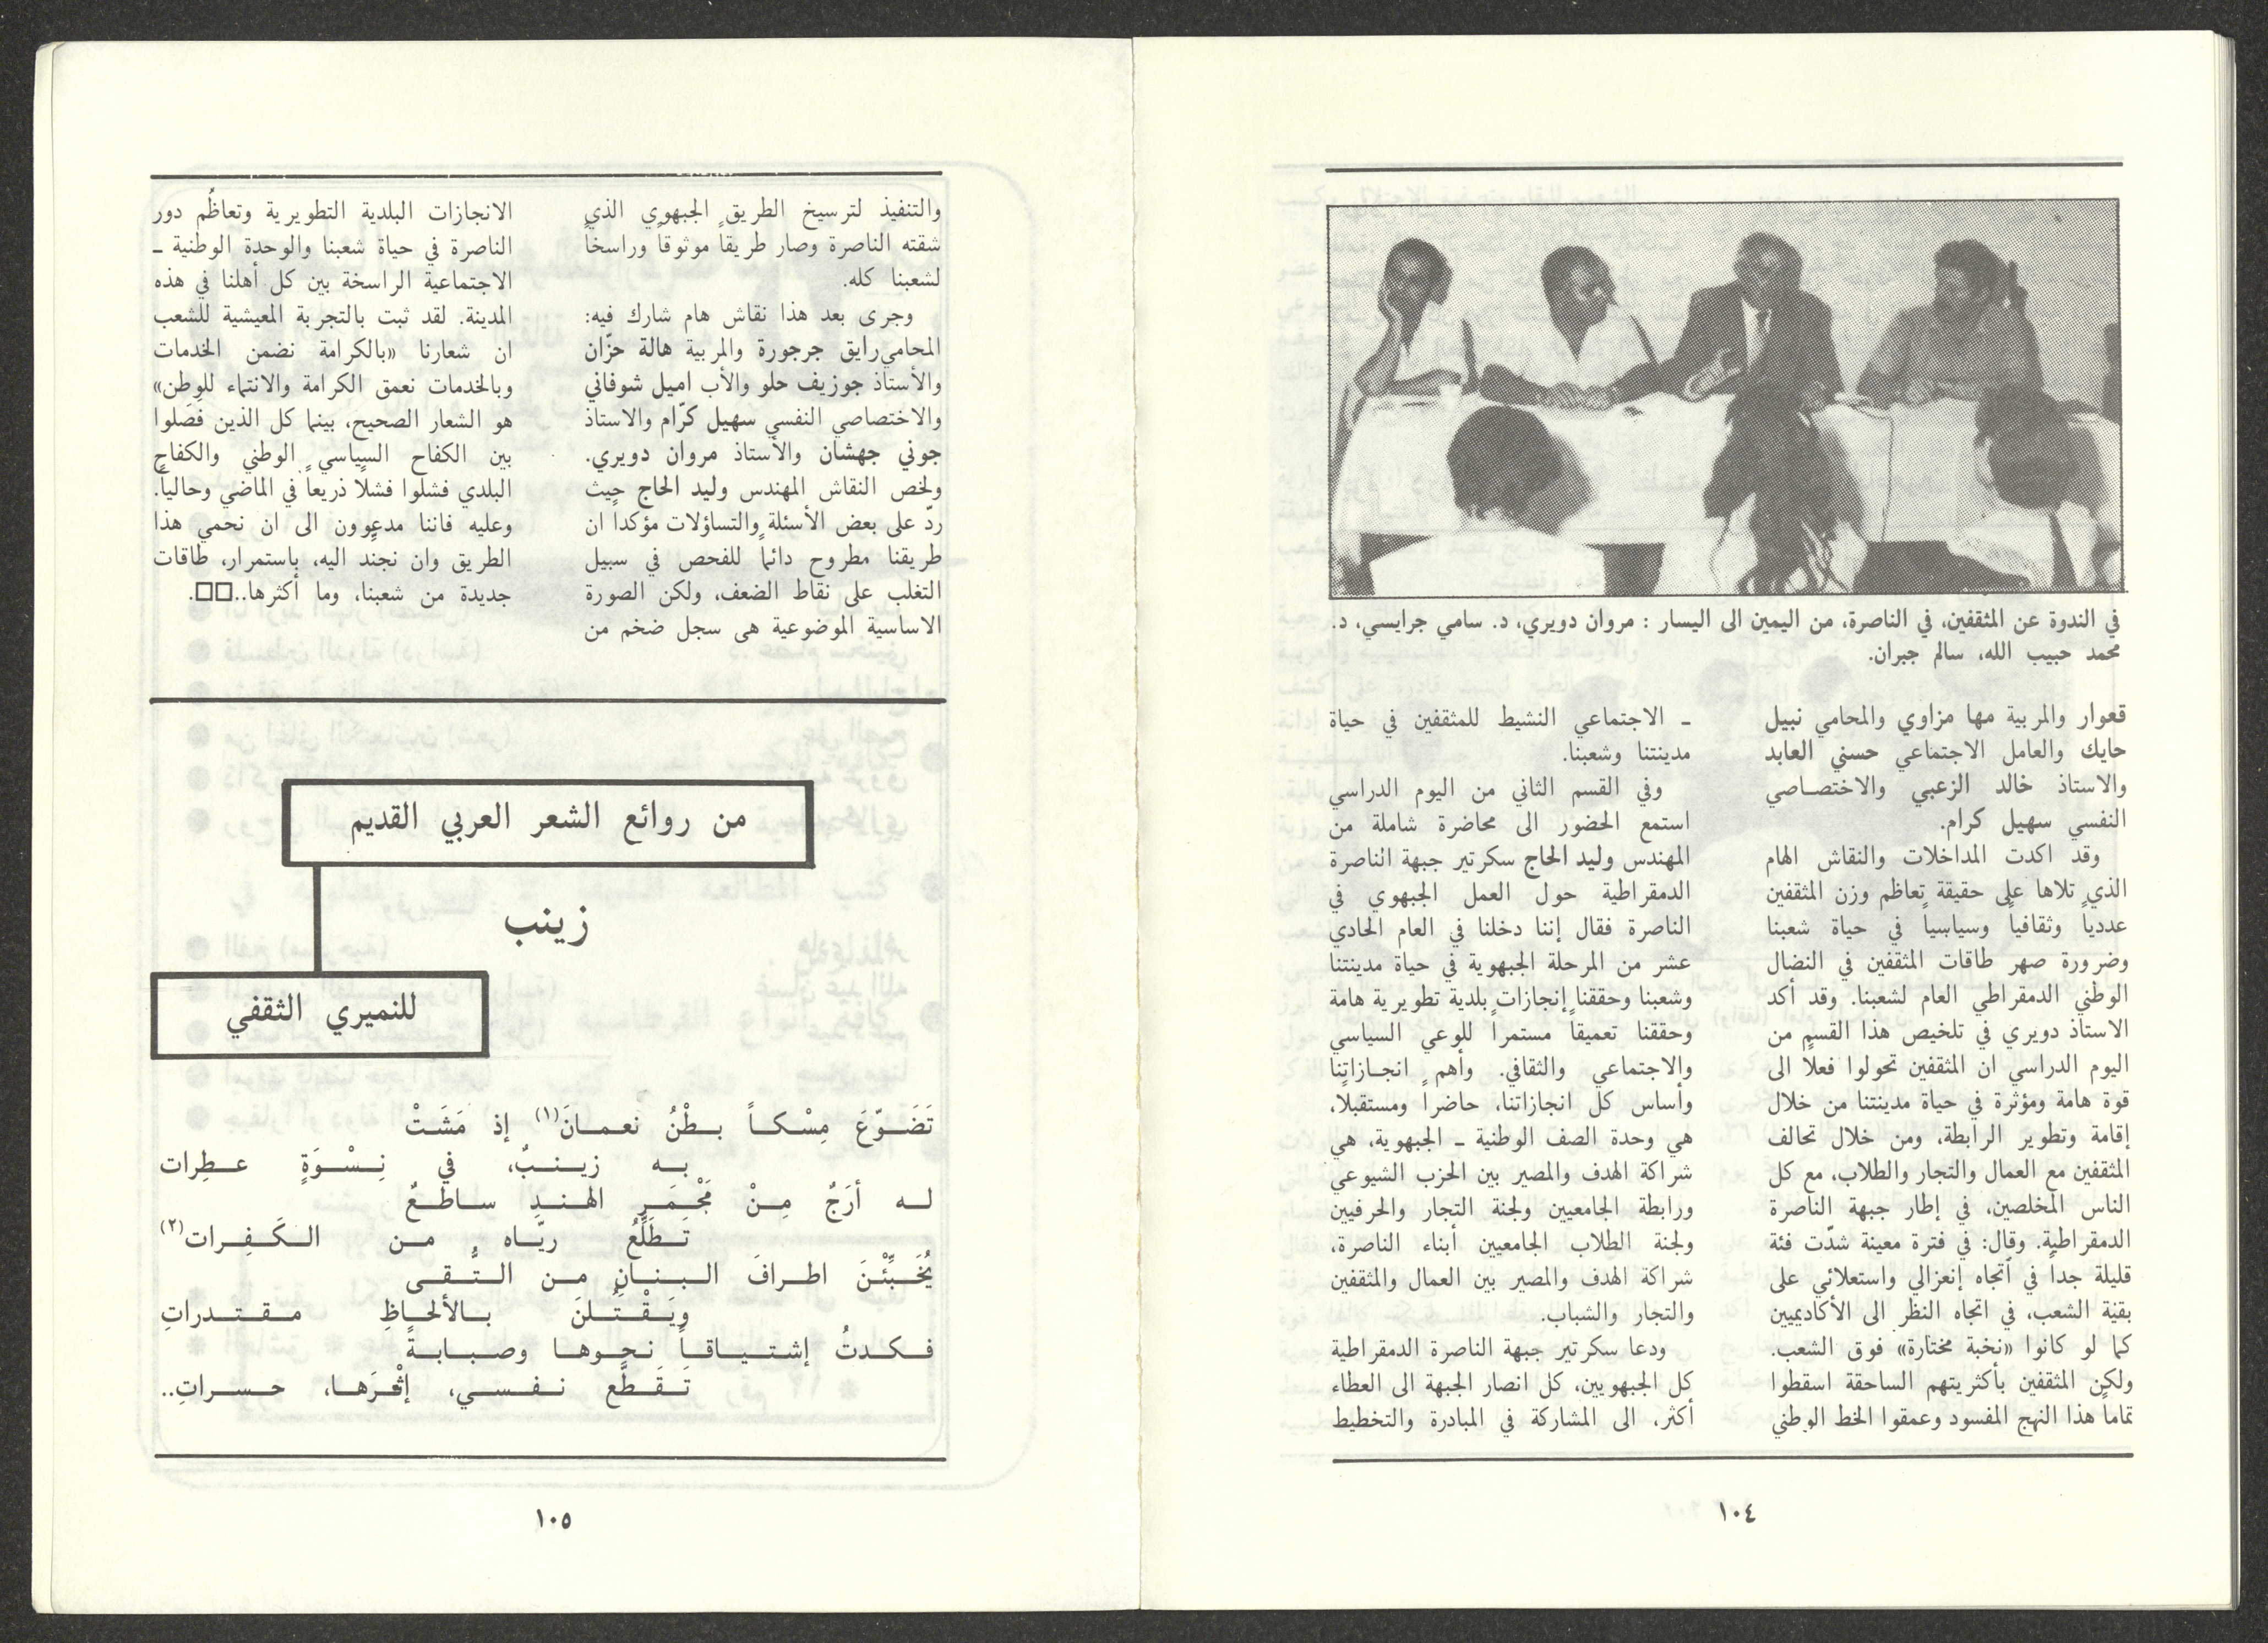 في الندوة عن المثقفين، في الناصرة، من اليمين الى اليسار : مروان دويري، د. سامي جرايسي، د.
محمد حبيب الله، سالم جبران.
قعوار والمربية مها مزاوي والمحامي نبيل
حايك والعامل الاجتماعي حسني العابد
والاستاذ خالد الزعبي والاختصاصي
النفسي سهيل كرام.
وقد اكدت المداخلات والنقاش الهام
الذي تلاها على حقيقة تعاظم وزن المثقفين
عددياً وثقافياً وسياسياً في حياة شعبنا
وضرورة صهر طاقات المثقفين في النضال
الوطني الدمقراطي العام لشعبنا. وقد أكد
الاستاذ دويري في تلخيص هذا القسم من
اليوم الدراسي ان المثقفين تحولوا فعلاً الى
قوة هامة ومؤثرة في حياة مدينتنا من خلال
إقامة وتطوير الرابطة، ومن خلال تحالف
المثقفين مع العمال والتجار والطلاب، مع كل
الناس المخلصين، في إطار جبهة الناصرة
الدمقراطية. وقال: في فترة معينة شدّت فئة
قليلة جداً في اتجاه إنعزالي واستعلائي على
بقية الشعب، في اتجاه النظر الى الأكاديميين
كما لو كانوا «نخبة مختارة» فوق الشعب.
ولكن المثقفين بأكثريتهم الساحقة اسقطوا
تماماً هذا النهج المفسود وعمقوا الخط الوطني
ـ الاجتماعي النشيط للمثقفين في حياة
مدينتنا وشعبنا.
وفي القسم الثاني من اليوم الدراسي
استمع الحضور الى محاضرة شاملة من
المهندس وليد الحاج سكرتير جبهة الناصرة
الدمقراطية حول العمل الجبهوي في
الناصرة فقال إننا دخلنا في العام الحادي
عشر من المرحلة الجبهوية في حياة مدينتنا
وشعبنا وحققنا إنجازات بلدية تطويرية هامة
وحققنا تعميقاً مستمراً للوعي السياسي
والاجتماعي والثقافي. وأهم انجازاتنا
وأساس كل انجازاتنا، حاضراً ومستقبلاً،
هي وحدة الصف الوطنية ـ الجبهوية، هي
شراكة الهدف والمصير بين الحزب الشيوعي
ورابطة الجامعيين ولجنة التجار والحرفيين
ولجنة الطلاب الجامعيين أبناء الناصرة،
شراكة الهدف والمصير بين العمال والمثقفين
والتجار والشباب.
ودعا سكرتير جبهة الناصرة الدمقراطية
كل الجبهويين، كل انصار الجبهة الى العطاء
أكثر، الى المشاركة في المبادرة والتخطيط
١٠٤
والتنفيذ لترسيخ الطريق الجبهوي الذي
شقته الناصرة وصار طريقاً موثوقاً وراسخاً
لشعبنا كله.
وجرى بعد هذا نقاش هام شارك فيه:
المحامي رايق جرجورة والمربية هالة حزّان
والأستاذ جوزيف حلو والأب اميل شوفاني
والاختصاصي النفسي سهيل كرّام والاستاذ
جوني جهشان والأستاذ مروان دويري.
ولخص النقاش المهندس وليد الحاج حيث
ردّ على بعض الأسئلة والتساؤلات مؤكداً ان
طريقنا مطروح دائماً للفحص في سبيل
التغلب على نقاط الضعف، ولكن الصورة
الاساسية الموضوعية هي سجل ضخم من
الانجازات البلدية التطويرية وتعاظُم دور
الناصرة في حياة شعبنا والوحدة الوطنية ـ
الاجتماعية الراسخة بين كل أهلنا في هذه
المدينة. لقد ثبت بالتجربة المعيشية للشعب
ان شعارنا «بالكرامة نضمن الخدمات
وبالخدمات نعمق الكرامة والانتماء للوطن»
هو الشعار الصحيح، بينما كل الذين فَصَلوا
بين الكفاح السياسي الوطني والكفاح
البلدي فشلوا فشلاً ذريعاً في الماضي وحالياً.
وعليه فاننا مدعوون الى ان نحمي هذا
الطريق وان نجنّد اليه، باستمرار، طاقات
جديدة من شعبنا، وما أكثرها..□□.
من روائع الشعر العربي القديم
زينب
للنميري الثقفي
تَضَوّعَ مِسْكاً بطْنُ نعمانَ(١) إذ مَشَتْ
به زينبٌ، في نِسْوَةٍ عطِرات
له أرَجٌ مِنْ مَجْمَرِ الهندِ ساطعٌ
تَطَلَّعُ ريّاه من الكَفِرات(٢)
يُخَبِّئْنَ اطرافَ البنانِ من التُّقى
ويَقْتُلنَ بالألحاظِ مقتدراتِ
فكدتُ إشتياقاً نحوها وصبابةً
تَقَطَّع نفسي، إثْرَها، حسراتِ..
١٠٥